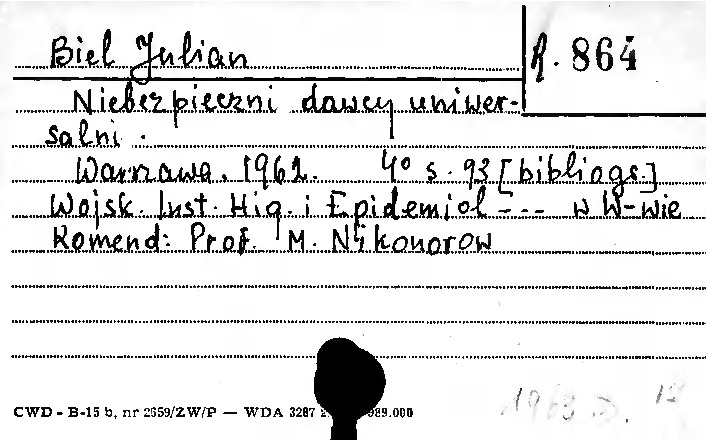 Biel Julian
R. 864
Niebezpieczni dawcy uniwer-
salni.
Warszawa. 1962. 4° s. 93 [bibliogr.]
Wojsk. Inst. Hig. i Epidemiol --- w W-wie
Komend: Prof. M. Nikonorow
1963 D. 12
CWD - B-15 b, nr 2659/ZW/P — WDA 3287 989.000